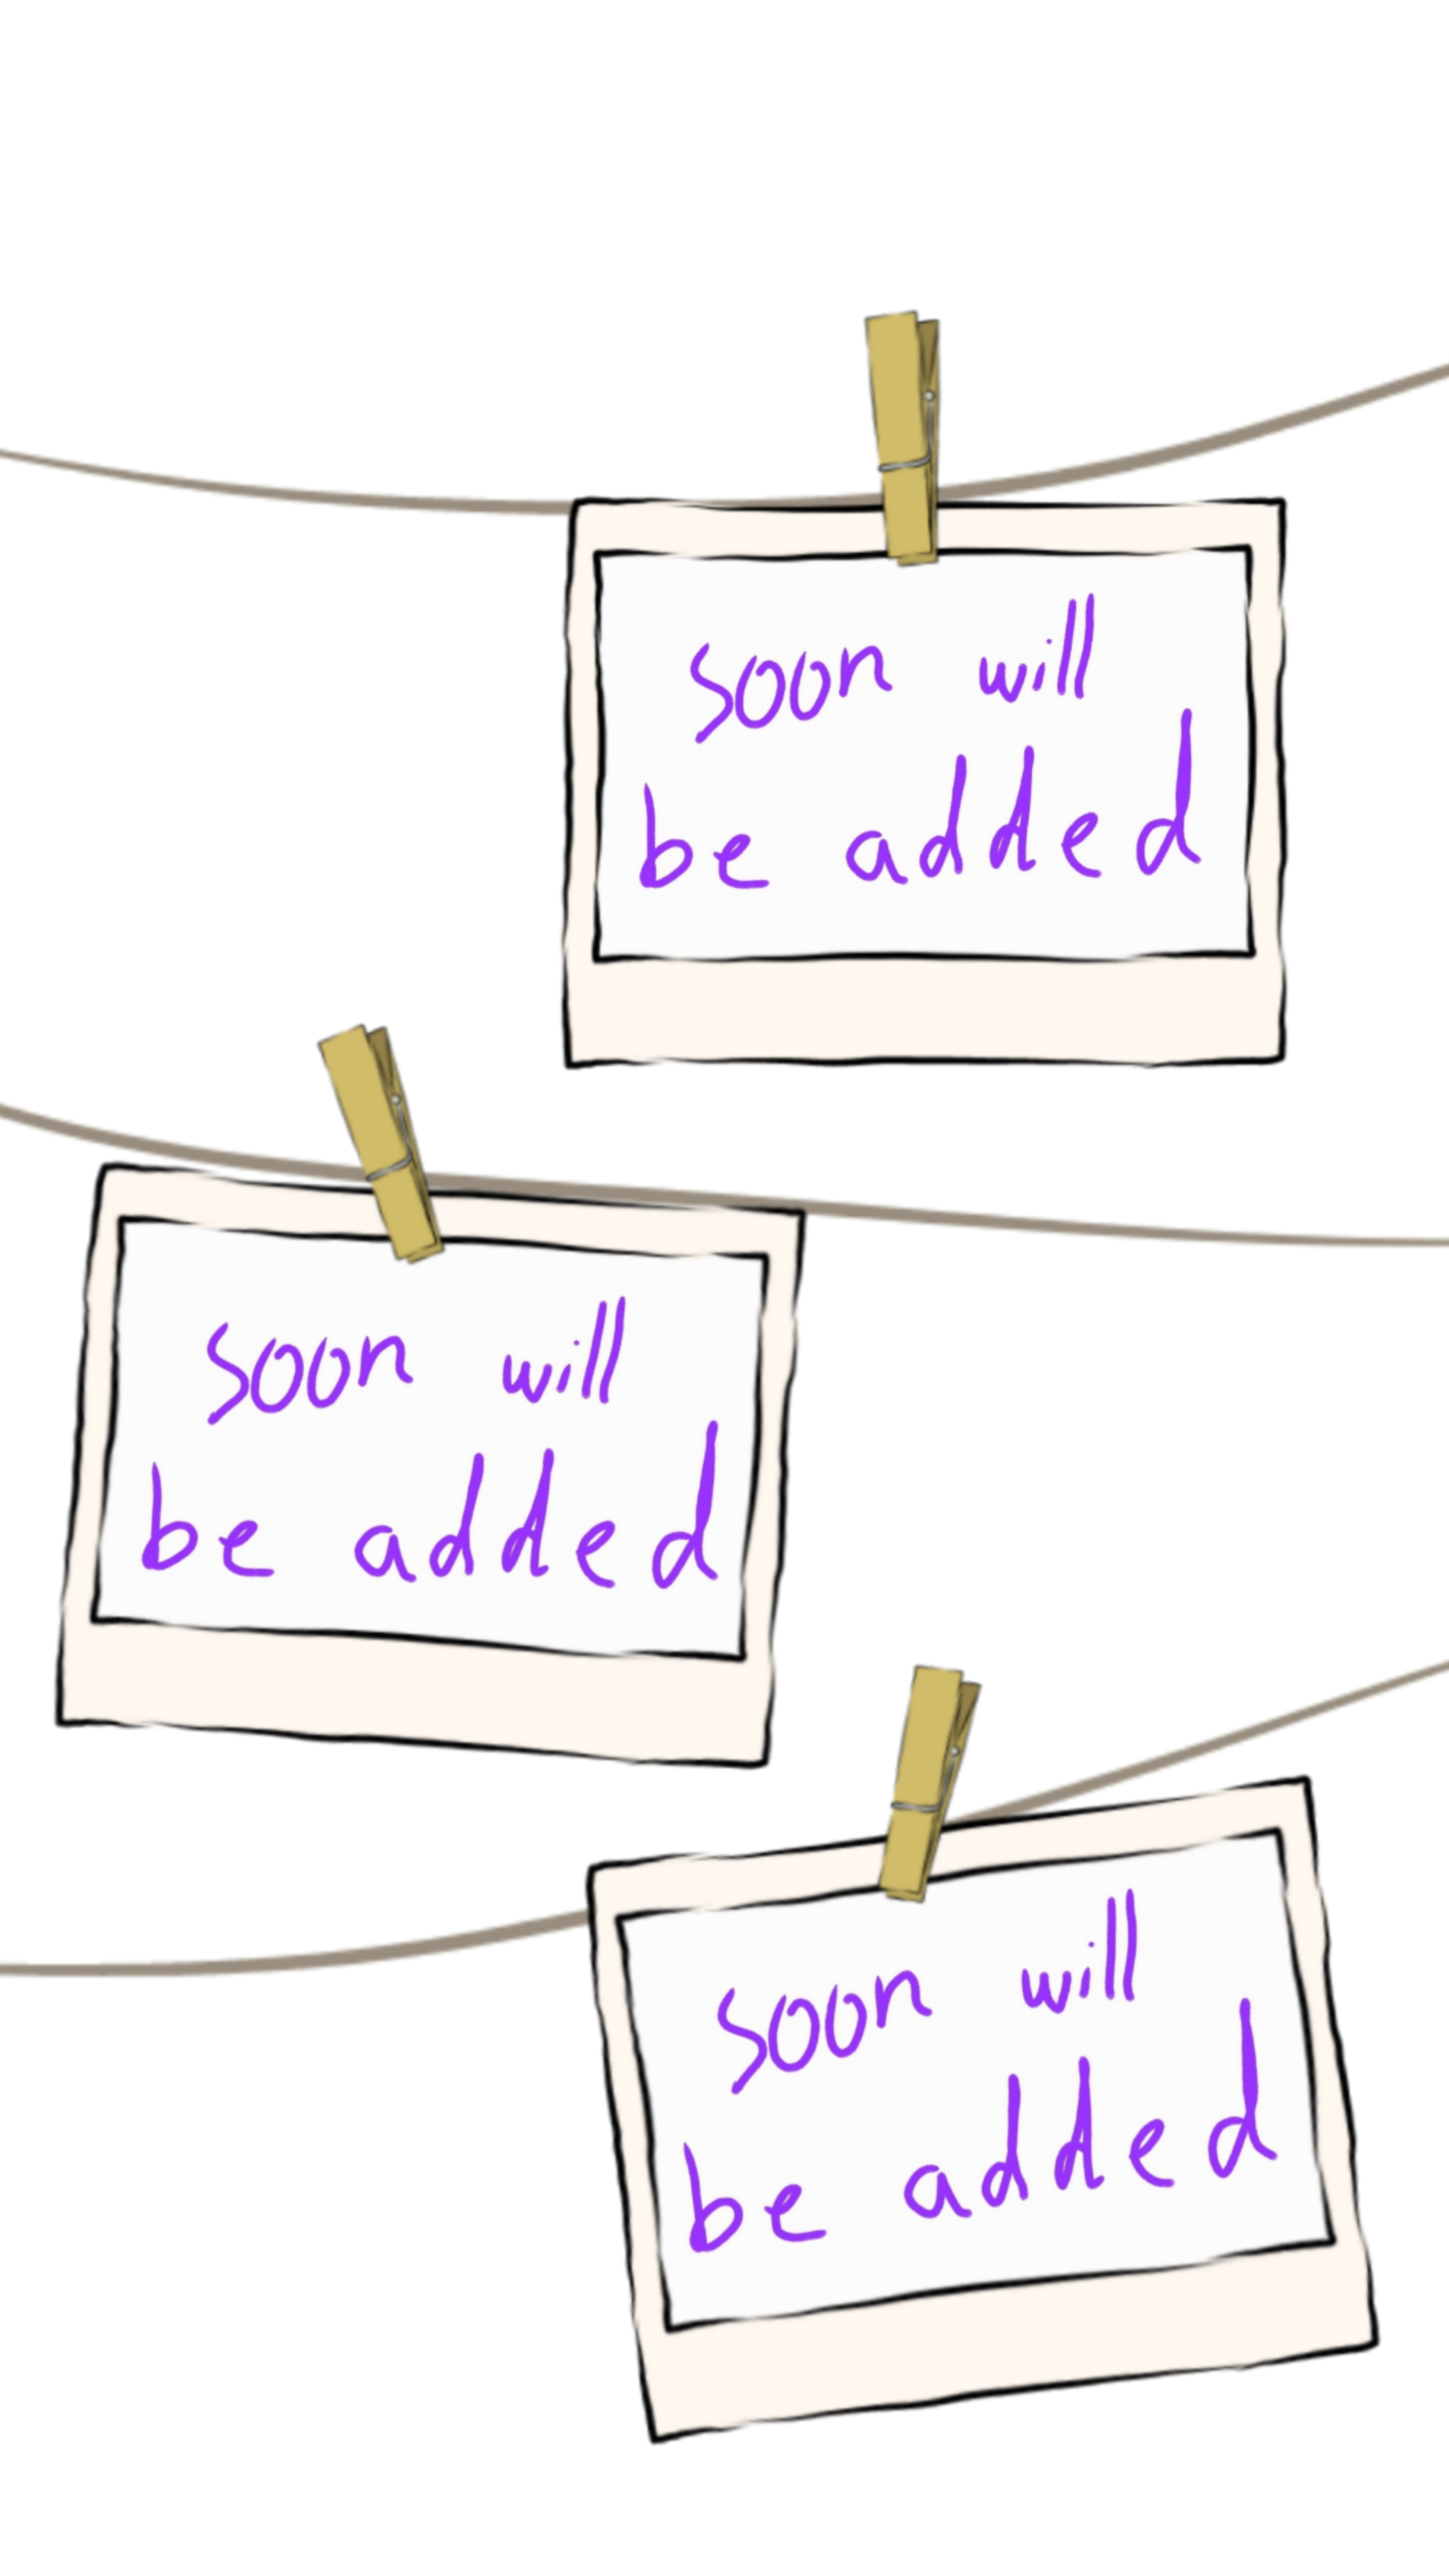 soon will
be added
soon will
be added
soon will
be added